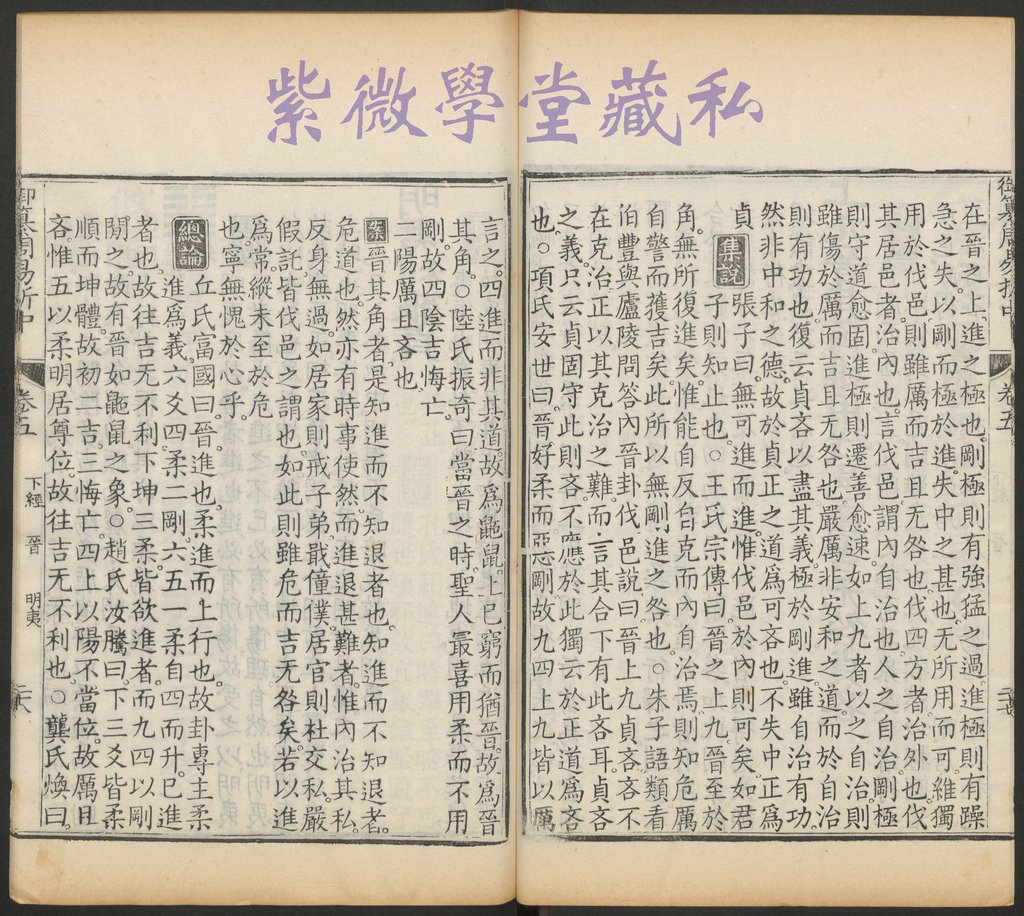 紫微學堂藏私
在晉之上進之極也剛極則有強猛之過進極則有躁
急之失以剛而極於進失中之甚也无所用而可維獨
用於伐邑則雖厲而吉且无咎也伐四方者治外也伐
其居邑者治內也言伐邑謂內自治也人之自治剛極
則守道愈固進極則遷善愈速如上九者以之自治則
雖傷於厲而吉且无咎也嚴厲非安和之道而於自治
則有功也復云貞吝以盡其義極於剛進雖自治有功
然非中和之德故於貞正之道爲可吝也不失中正爲
貞
集說
張子曰无可進而進惟伐邑於內則可矣如君
子則知止也○王氏宗傳曰晉之上九晉至於
角无所復進矣惟能自反自克而內自治焉則知危厲
自警而獲吉矣此所以無剛進之咎也○朱子語類看
伯豐與廬陵問答內晉卦伐邑說曰晉上九貞吝吝不
在克治正以其克治之難而言其合下有此吝耳貞吝
之義只云貞固守此則吝不應於此獨云於正道爲吝
也○項氏安世曰晉好柔而惡剛故九四上九皆以厲
御纂周易折中
卷五
言之四進而非其道故爲鼫鼠上已窮而猶晉故爲晉
其角○陸氏振奇曰當晉之時聖人最喜用柔而不用
剛故四陰吉悔亡
二陽厲且吝也
案
晉其角者是知進而不知退者也知進而不知退者
危道也然亦有時事使然而進退甚難者惟內治其私
反身無過如居家則戒子弟戢僮僕居官則杜交私嚴
假託皆伐邑之謂也如此則雖危而吉无咎矣若以進
爲常縱未至於危
也寧無愧於心乎
總論
丘氏富國曰晉進也柔進而上行也故卦專主柔
進爲義六爻四柔二剛六五一柔自四而升已進
者也故往吉无不利下坤三柔皆欲進者而九四以剛
閒之故有晉如鼫鼠之象○趙氏汝騰曰下三爻皆柔
順而坤體故初二吉三悔亡四上以陽不當位故厲且
吝惟五以柔明居尊位故往吉无不利也○龔氏煥曰
御纂周易折中
卷五
下經
晉
明夷
二六